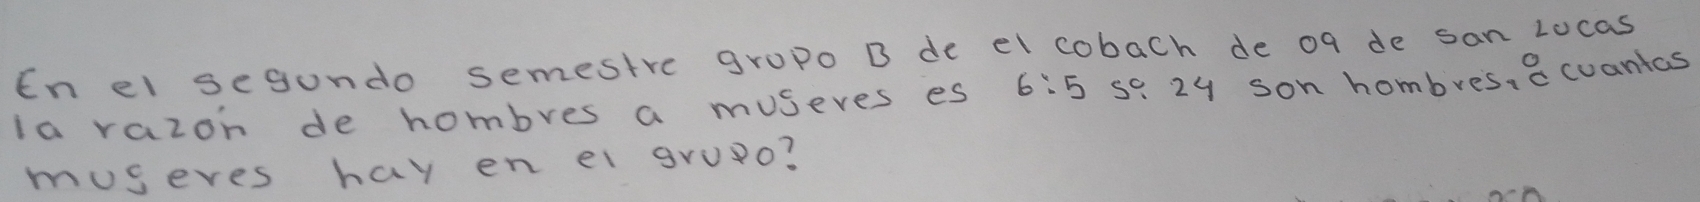 En el segundo semestre grupo B de el cobach de 09 de san Lucas
la razón de hombres a museres es 6:5 si 24 son hombres, ¿cuantas
museres hay en el grupo?